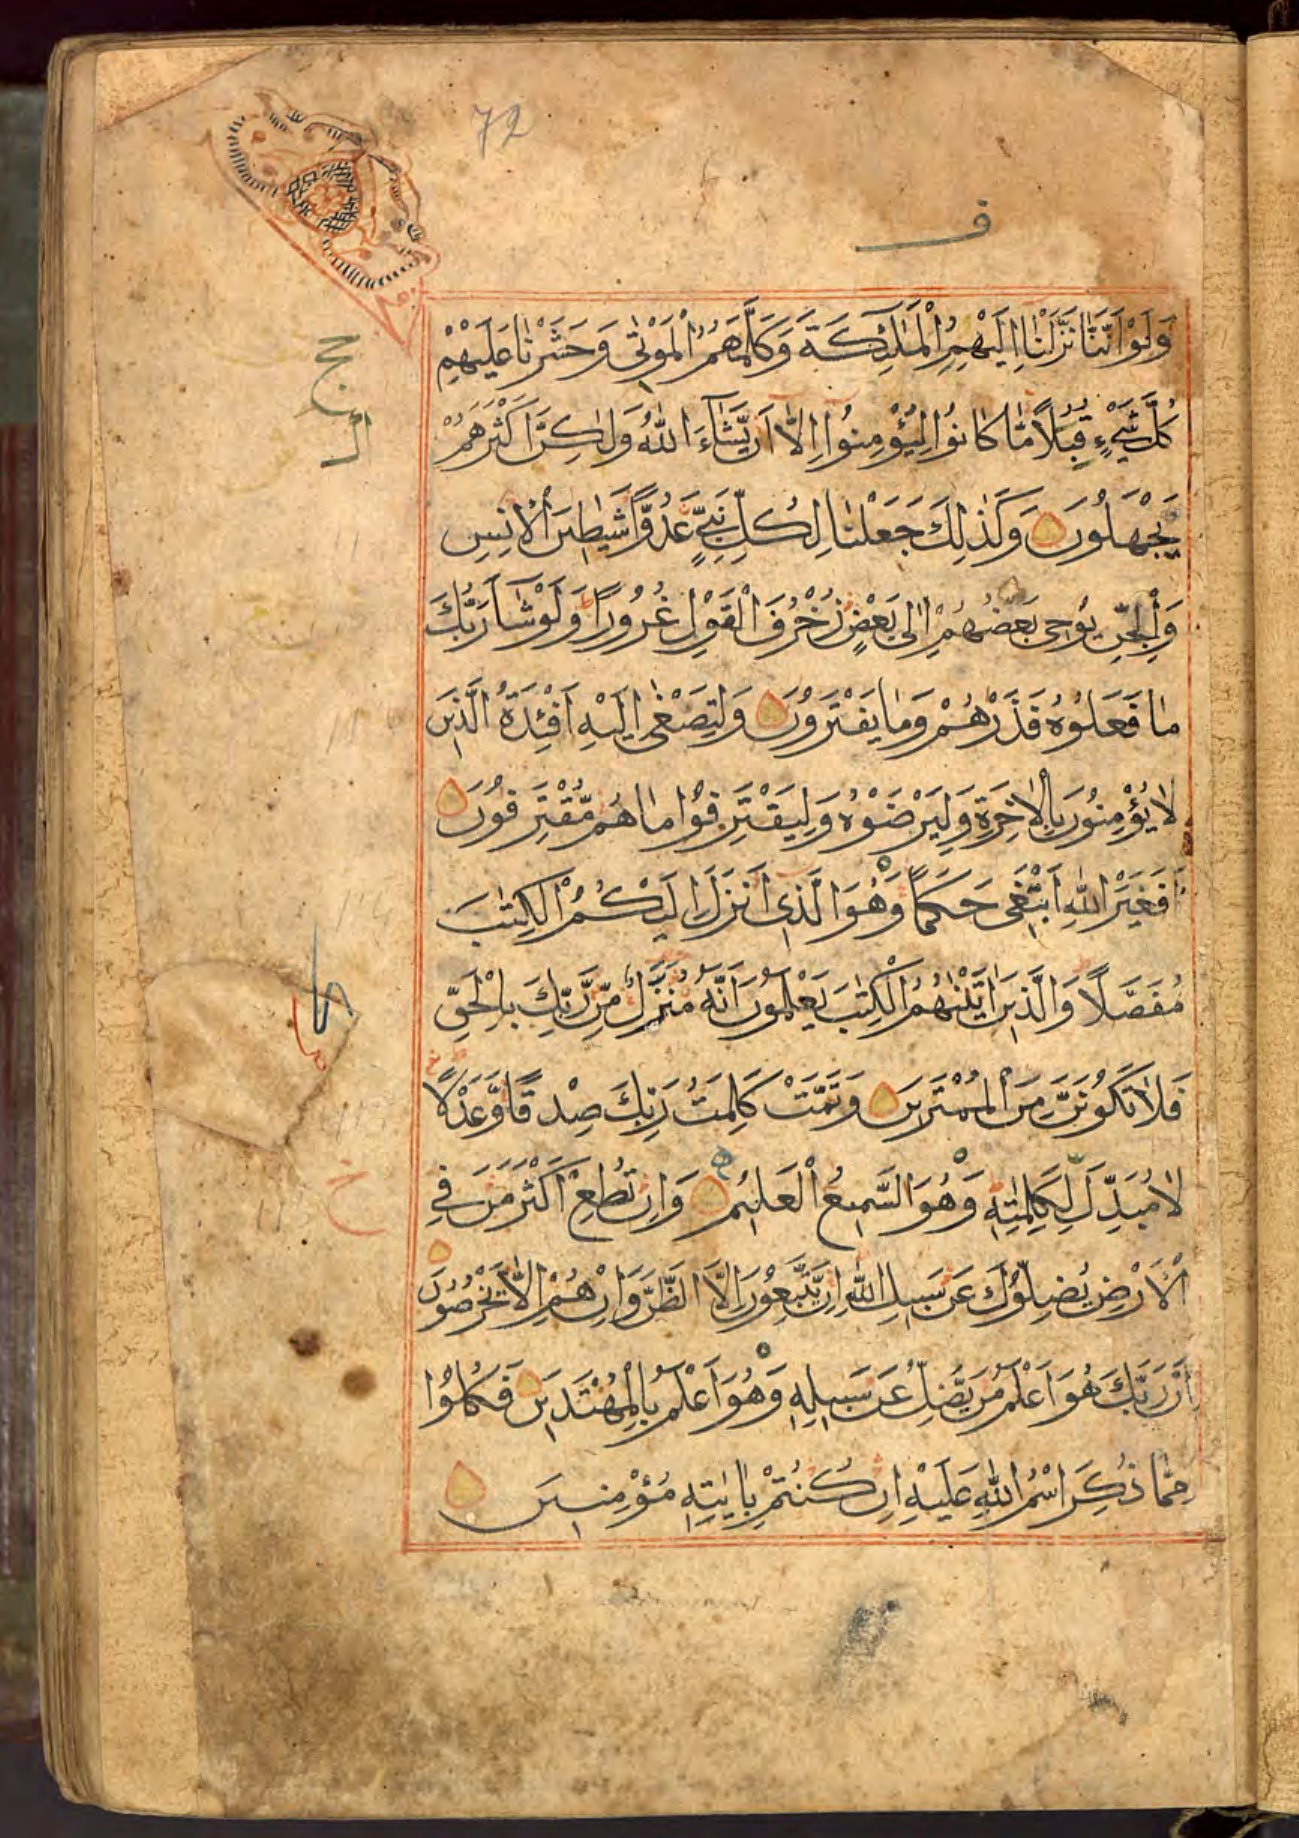 72
ف
وَلَوْ اَنَّنَا نَزَّلْنَا اِلَيْهِمُ الْمَلٰٓئِكَةَ وَكَلَّمَهُمُ الْمَوْتٰى وَحَشَرْنَا عَلَيْهِمْ
كُلَّ شَيْءٍ قُبُلًا مَّا كَانُوا لِيُؤْمِنُوا اِلَّا اَنْ يَّشَآءَ اللّٰهُ وَلٰكِنَّ اَكْثَرَهُمْ
يَجْهَلُوْنَ وَكَذٰلِكَ جَعَلْنَا لِكُلِّ نَبِيٍّ عَدُوًّا شَيٰطِيْنَ الْاِنْسِ
وَالْجِنِّ يُوْحِيْ بَعْضُهُمْ اِلٰى بَعْضٍ زُخْرُفَ الْقَوْلِ غُرُوْرًا وَلَوْ شَآءَ رَبُّكَ
مَا فَعَلُوْهُ فَذَرْهُمْ وَمَا يَفْتَرُوْنَ وَلِتَصْغٰى اِلَيْهِ اَفْئِدَةُ الَّذِيْنَ
لَا يُؤْمِنُوْنَ بِالْاٰخِرَةِ وَلِيَرْضَوْهُ وَلِيَقْتَرِفُوْا مَا هُمْ مُّقْتَرِفُوْنَ
اَفَغَيْرَ اللّٰهِ اَبْتَغِيْ حَكَمًا وَهُوَ الَّذِيْ اَنْزَلَ اِلَيْكُمُ الْكِتٰبَ
مُفَصَّلًا وَالَّذِيْنَ اٰتَيْنٰهُمُ الْكِتٰبَ يَعْلَمُوْنَ اَنَّهُ مُنَزَّلٌ مِّنْ رَّبِّكَ بِالْحَقِّ
فَلَا تَكُوْنَنَّ مِنَ الْمُمْتَرِيْنَ وَتَمَّتْ كَلِمَتُ رَبِّكَ صِدْقًا وَّعَدْلًا
لَا مُبَدِّلَ لِكَلِمٰتِهِ وَهُوَ السَّمِيْعُ الْعَلِيْمُ وَاِنْ تُطِعْ اَكْثَرَ مَنْ فِي
الْاَرْضِ يُضِلُّوْكَ عَنْ سَبِيْلِ اللّٰهِ اِنْ يَّتَّبِعُوْنَ اِلَّا الظَّنَّ وَاِنْ هُمْ اِلَّا يَخْرُصُوْنَ
اِنَّ رَبَّكَ هُوَ اَعْلَمُ مَنْ يَّضِلُّ عَنْ سَبِيْلِهِ وَهُوَ اَعْلَمُ بِالْمُهْتَدِيْنَ فَكُلُوْا
مِمَّا ذُكِرَ اسْمُ اللّٰهِ عَلَيْهِ اِنْ كُنْتُمْ بِاٰيٰتِهِ مُؤْمِنِيْنَ